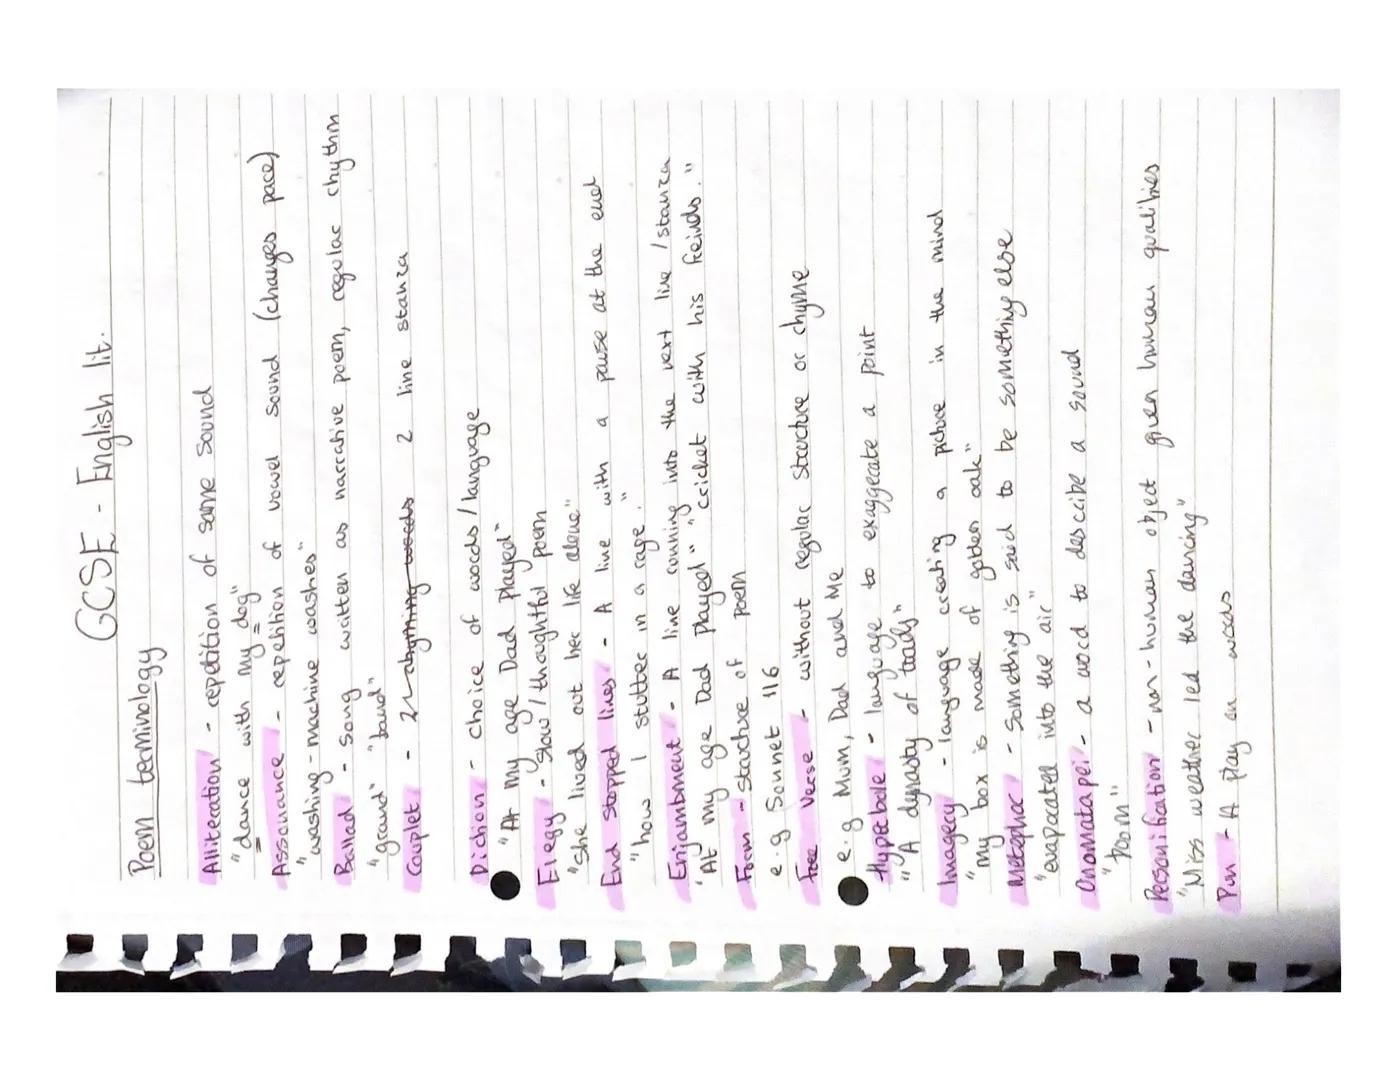 GCSE - English lit.
Poem terminology
Alliteration - repetition of same sound
"dance with my dog"
Assonance - repetition of vowel sound (changes pace)
"washing-machine washes"
Ballad - song written as narrative poem, regular rhythm
"grand" "band"
Couplet - 2 rhyming words 2 line stanza
Diction - choice of words/language
"At my age Dad played"
Elegy - slow/thoughtful poem
"She lived out her life alone"
End Stopped lines - A line with a pause at the end
"how I stutter in a rage."
Enjambment - A line running into the next line/stanza
"At my age Dad played" "cricket with his freinds."
Form - Structure of poem
e.g Sonnet 116
Free Verse - without regular structure or rhyme
e.g Mum, Dad and Me
Hyperbole - language to exaggerate a point
"A dynasty of toads"
Imagery - language creating a picture in the mind
"my box is made of golden oak"
Metaphor - something is said to be something else
"evaporated into the air"
Onomatapei - a word to describe a sound
"boom"
Personification - non-human object given human qualities
"Miss weather led the dancing"
Pun - A play on words